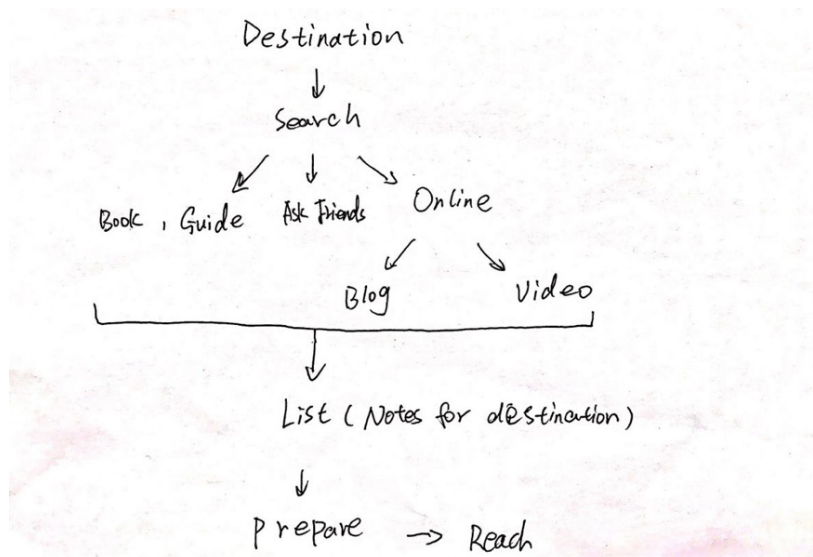 Destination
Search
Book, Guide Ask Friends Online
Blog Video
List (Notes for destination)
Prepare → Reach